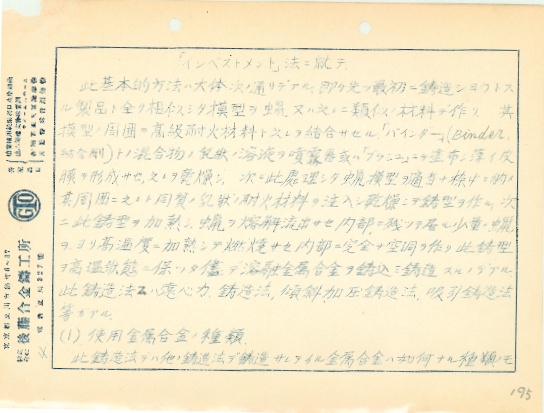 「インベストメント」法ニ就テ
此基本的方法ハ大体次ノ通リデアル、即チ先ヅ最初ニ鋳造シヨウトス
ル製品ト全ク相似シタ模型ヲ蝋又ハ之ニ類似ノ材料デ作リ 其
模型ノ周囲ニ高級耐火材料ト之レヲ結合サセル「バインダー」(Binder
結合剤)トノ混合物ノ乳状ノ溶液ヲ噴霧器或ハ「ブラッシュ」ニテ塗布シ薄イ皮
膜ヲ形成サセ之レヲ乾燥シ、次ニ此處理シタ蝋模型ヲ適当ナ枠ノ中ニ納メ
其周囲ニ之レト同質ノ乳状ノ耐火材料ヲ注入シ乾燥シテ鋳型ヲ作ル、次
ニ此鋳型ヲ加熱シ、蝋ヲ熔解流出サセ内部ニ残ツテ居ル少量ノ蝋
ヲヨリ高温度ニ加熱シテ燃焼サセ内部ニ完全ナ空洞ヲ作リ此鋳型
ヲ高温状態ニ保ツタ儘デ溶融金属合金ヲ鋳込ミ鋳造スルノデアル
此鋳造法ニハ遠心力鋳造法、傾斜加圧鋳造法、吸引鋳造法
等ガアル
(1) 使用金属合金ノ種類
此鋳造法デハ他ノ鋳造法デ鋳造サレテイル金属合金ハ如何ナル種類ノモ
GTO
後藤合金鋳工所
195